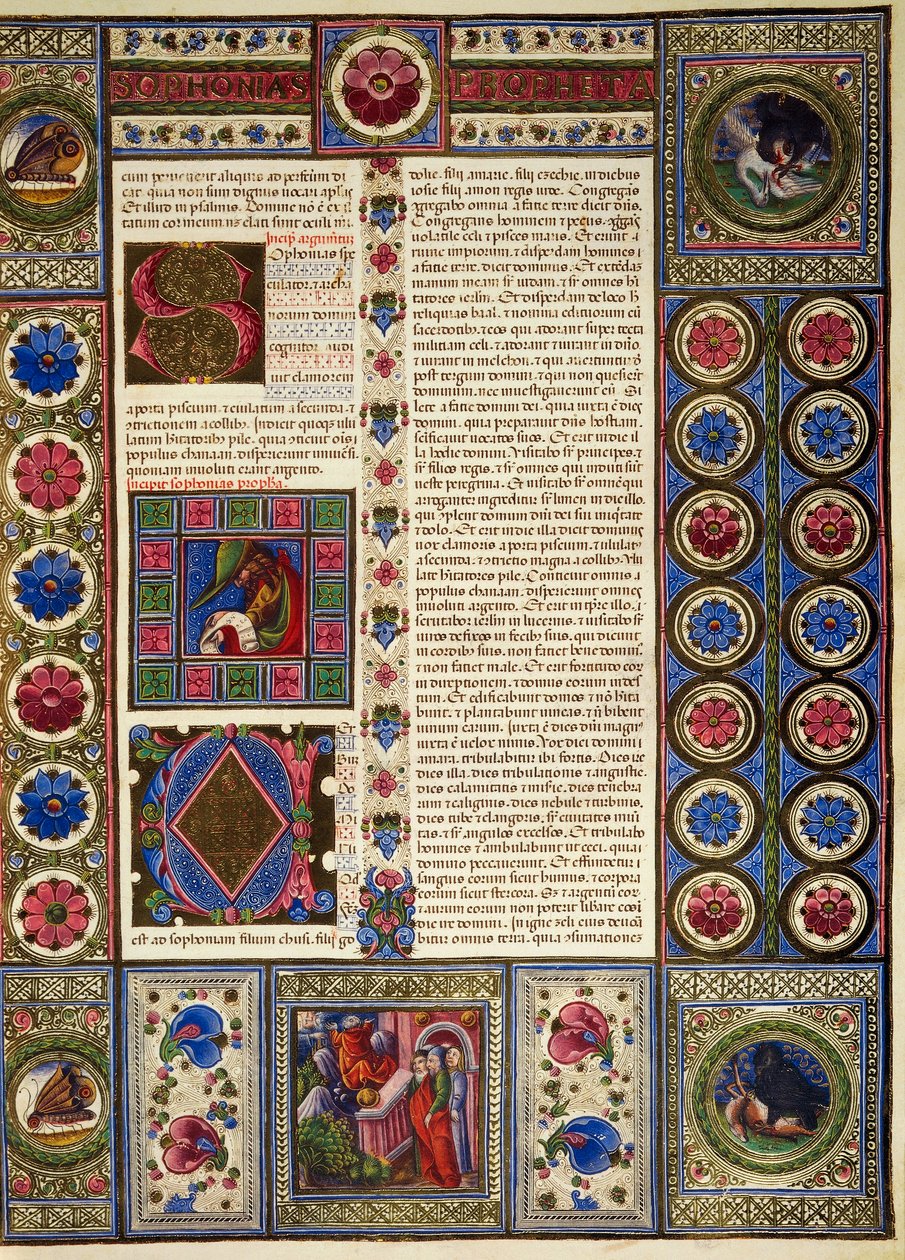 SOPHONIAS PROPHETA
cum pervenerit aliquis ad perfectum di
cat. qua non sum dignus vocari aplus
Et illud in psalmis. Domine no e exal
tatum cor meum. nec elati sunt oculi m.
Incipit argumentum
Sophonias spe
culator. et archa
norum domini
cognitor. audi
vit clamorem
a porta piscium. et eiulatum a secunda. et
contrictionem a collib. Indicit quoque ulu
latum habitatoribus pile. quia conticuit ois
populus chanaan. disperierunt universi
quoniam involuti erant argento.
Incipit sophonias propha.
est ad sophoniam filium chusi. filij go
dolie. filij amarie. filij ezechie. in diebus
iosie filij amon regis iude. Congregans
congregabo omnia a facie terre dicit dns.
Congregans hominem et pecus. congregans
volatile celi et pisces maris. Et erunt ru
ine impiorum. et disperdam homines
a facie terre. dicit dominus. Et extendam
manum meam super iudam. et super omnes habi
tatores ierlm. Et disperdam de loco hoc
reliquias baal. et nomina edituorum cu
sacerdotib. et eos qui adorant super tecta
militiam celi. et adorant et iurant in dno.
et iurant in melchon. et qui avertuntur de
post tergum domini. et qui non quesierunt
dominum. nec investigaverunt eum. Si
lete a facie domini dei. quia iuxta e dies
domini. quia preparavit dns hostiam.
sctificavit vocatos suos. Et erit in die il
la hostie domini. visitabo super principes. et
super filios regis. et super omnes qui induti sunt
veste peregrina. Et visitabo super omnem qui
arroganter ingreditur super limen in die illo.
qui complent domum dni dei sui iniquitate
et dolo. Et erit in die illa dicit dominus
vox clamoris a porta piscium. et ululatus
a secunda. et contritio magna a collib. Ulu
late habitatores pile. Conticuit omnis
populus chanaan. disperierunt omnes
involuti argento. Et erit in tpre illo.
scrutabor ierlm in lucernis. et visitabo super
viros defixos in fecib suis. qui dicunt
in cordibus suis. non faciet bene dominus.
et non faciet male. Et erit fortitudo eor
in direptionem. et domus eorum in deser
tum. Et edificabunt domos et no habita
bunt. et plantabunt vineas. et no bibent
vinum earum. Iuxta e dies dni magnus
iuxta e et velox nimis. Vox diei domini
amara. tribulabitur ibi fortis. Dies ire
dies illa. dies tribulationis et angustie.
dies calamitatis et miserie. dies tenebra
rum et caliginis. dies nebule et turbinis.
dies tube et clangoris. super civitates muni
tas. et super angulos excelsos. Et tribulabo
homines et ambulabunt ut ceci. quia
domino peccaverunt. Et effundetur
sanguis eorum sicut humus. et corpora
eorum sicut stercora. Sed et argentum eor
et aurum eorum non poterit liberare eos
die ire domini. In igne zeli eius devora
bitur omnis terra. quia consumationem